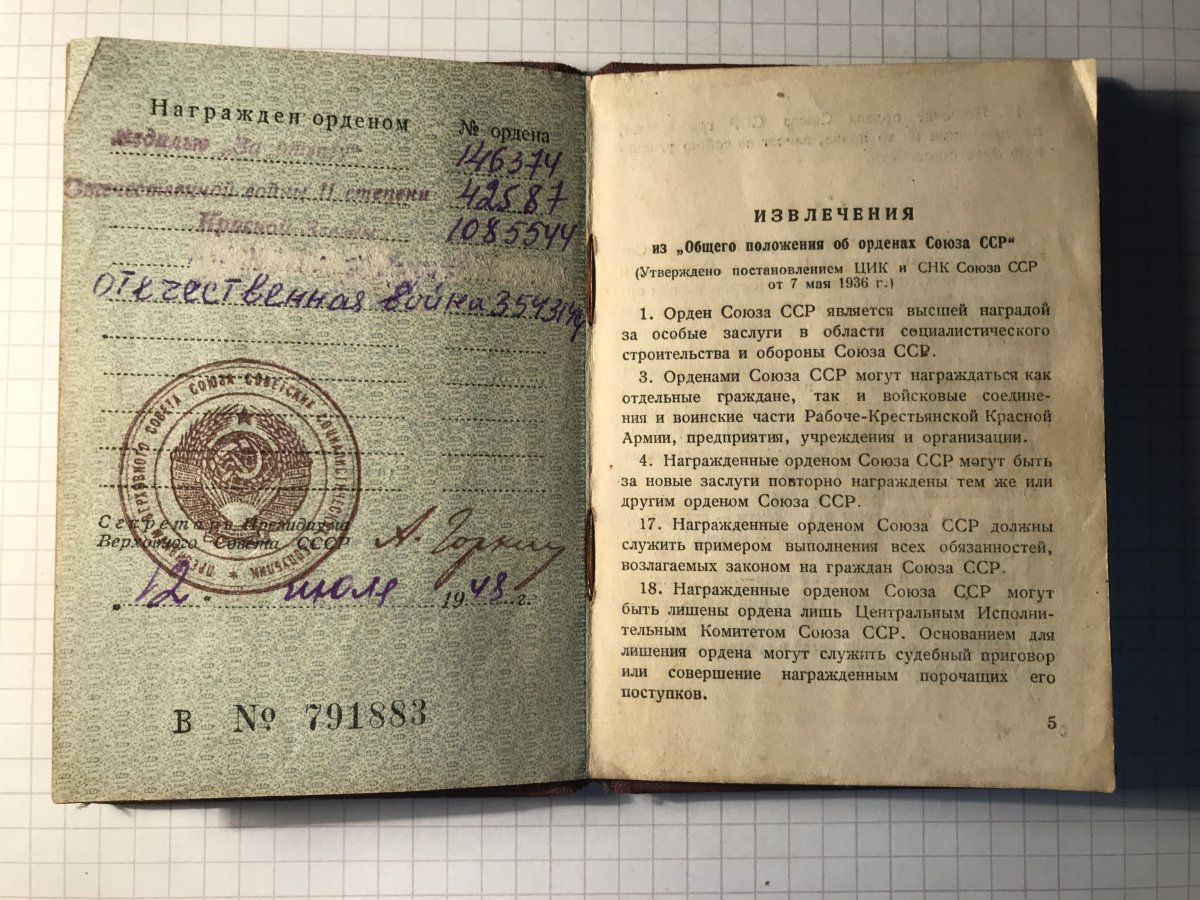 Награжден орденом
№ ордена
медалью „За отвагу“
146374
Отечественной войны II степени
42587
Красной Звезды
1085544
отечественная война 3543149
ВЕРХОВНОГО СОВЕТА СОЮЗА СОВЕТСКИХ СОЦИАЛИСТИЧЕСКИХ РЕСПУБЛИК
Секретарь Президиума
Верховного Совета СССР
А. Горкин
12. июля 1948 г.
В № 791883
ИЗВЛЕЧЕНИЯ
из „Общего положения об орденах Союза ССР“
(Утверждено постановлением ЦИК и СНК Союза ССР
от 7 мая 1936 г.)
1. Орден Союза ССР является высшей наградой
за особые заслуги в области социалистического
строительства и обороны Союза ССР.
3. Орденами Союза ССР могут награждаться как
отдельные граждане, так и войсковые соедине-
ния и воинские части Рабоче-Крестьянской Красной
Армии, предприятия, учреждения и организации.
4. Награжденные орденом Союза ССР могут быть
за новые заслуги повторно награждены тем же или
другим орденом Союза ССР.
17. Награжденные орденом Союза ССР должны
служить примером выполнения всех обязанностей,
возлагаемых законом на граждан Союза ССР.
18. Награжденные орденом Союза ССР могут
быть лишены ордена лишь Центральным Исполни-
тельным Комитетом Союза ССР. Основанием для
лишения ордена могут служить судебный приговор
или совершение награжденным порочащих его
поступков.
5